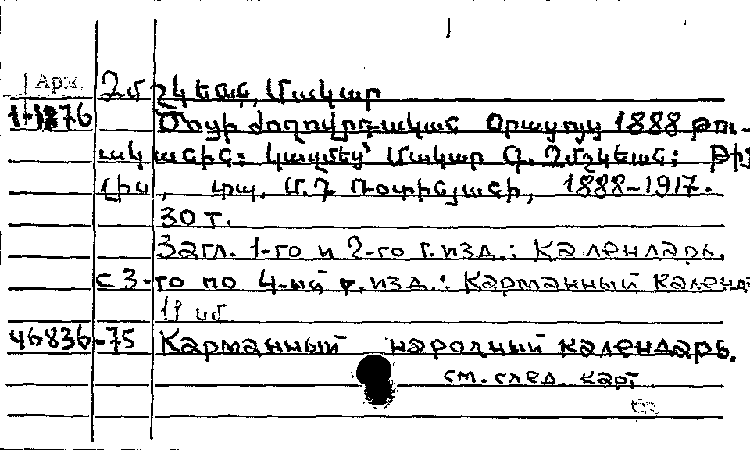 Арм.
Չմշկեան, Մակար
1-1276 Ծոցի ժողովրդական Օրացոյց 1888 թու-
ականին: Կազմեց՝ Մակար Գ. Չմշկեան: Թիֆ-
լիս, տպ. Մ.Դ. Ռոտինյանցի, 1888-1917.
30 т.
Загл. 1-го и 2-го г. изд.: Календарь.
с 3-го по 4-ый г. изд.: Карманный Календ
46836-75 Карманный народный календарь.
см. след. карт